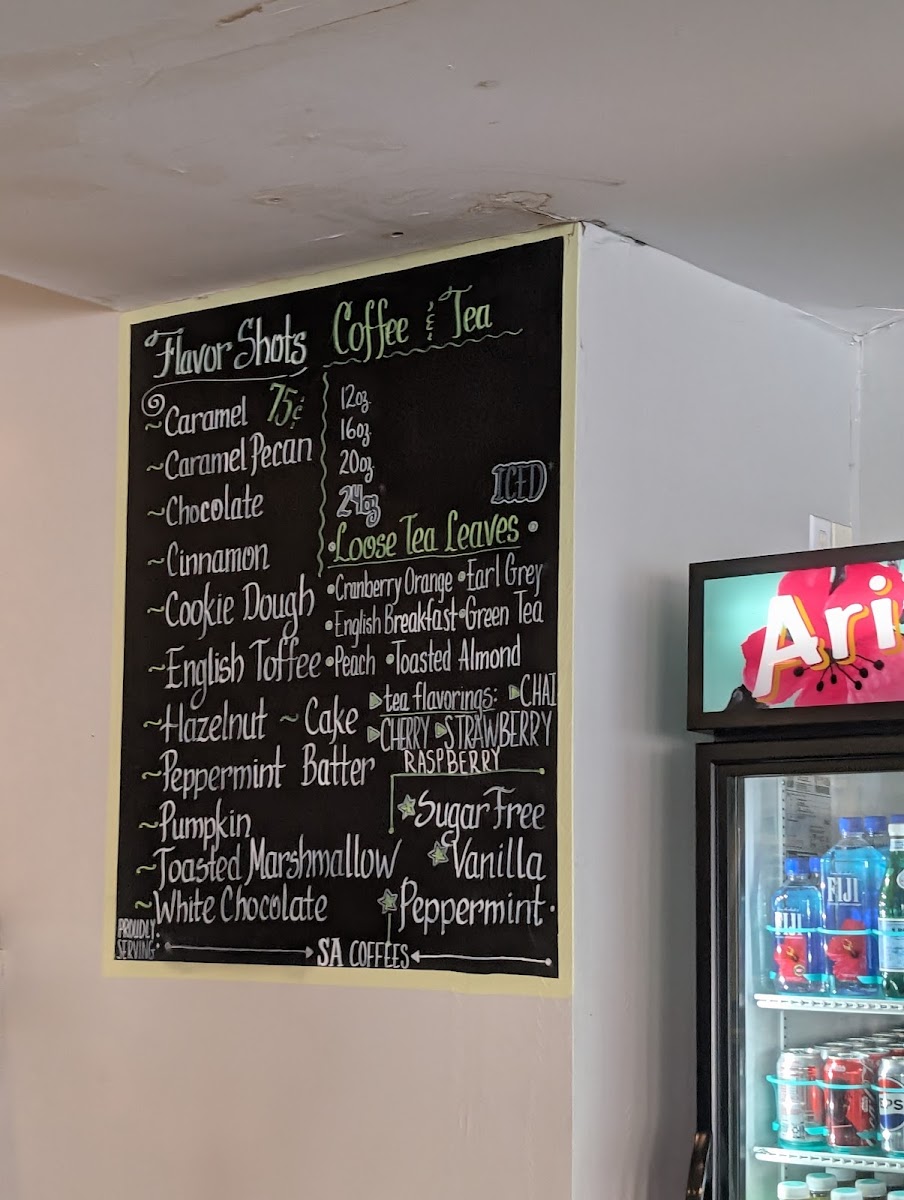 Flavor Shots
75¢
~Caramel
~Caramel Pecan
~Chocolate
~Cinnamon
~Cookie Dough
~English Toffee
~Hazelnut ~Cake
~Peppermint Batter
~Pumpkin
~Toasted Marshmallow
~White Chocolate
Coffee & Tea
12oz
16oz
20oz
24oz ICED
•Loose Tea Leaves•
•Cranberry Orange •Earl Grey
•English Breakfast •Green Tea
•Peach •Toasted Almond
tea flavorings: CHAI
CHERRY STRAWBERRY
RASPBERRY
Sugar Free
Vanilla
Peppermint
PROUDLY
SERVING:
SA COFFEES
Ari
FIJI
FIJI